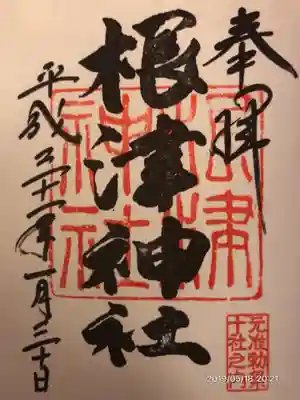 奉拝
根津神社
平成三十一年一月三十日
根津
神社
元准勅祭
十社之内
2019/05/18 20:21